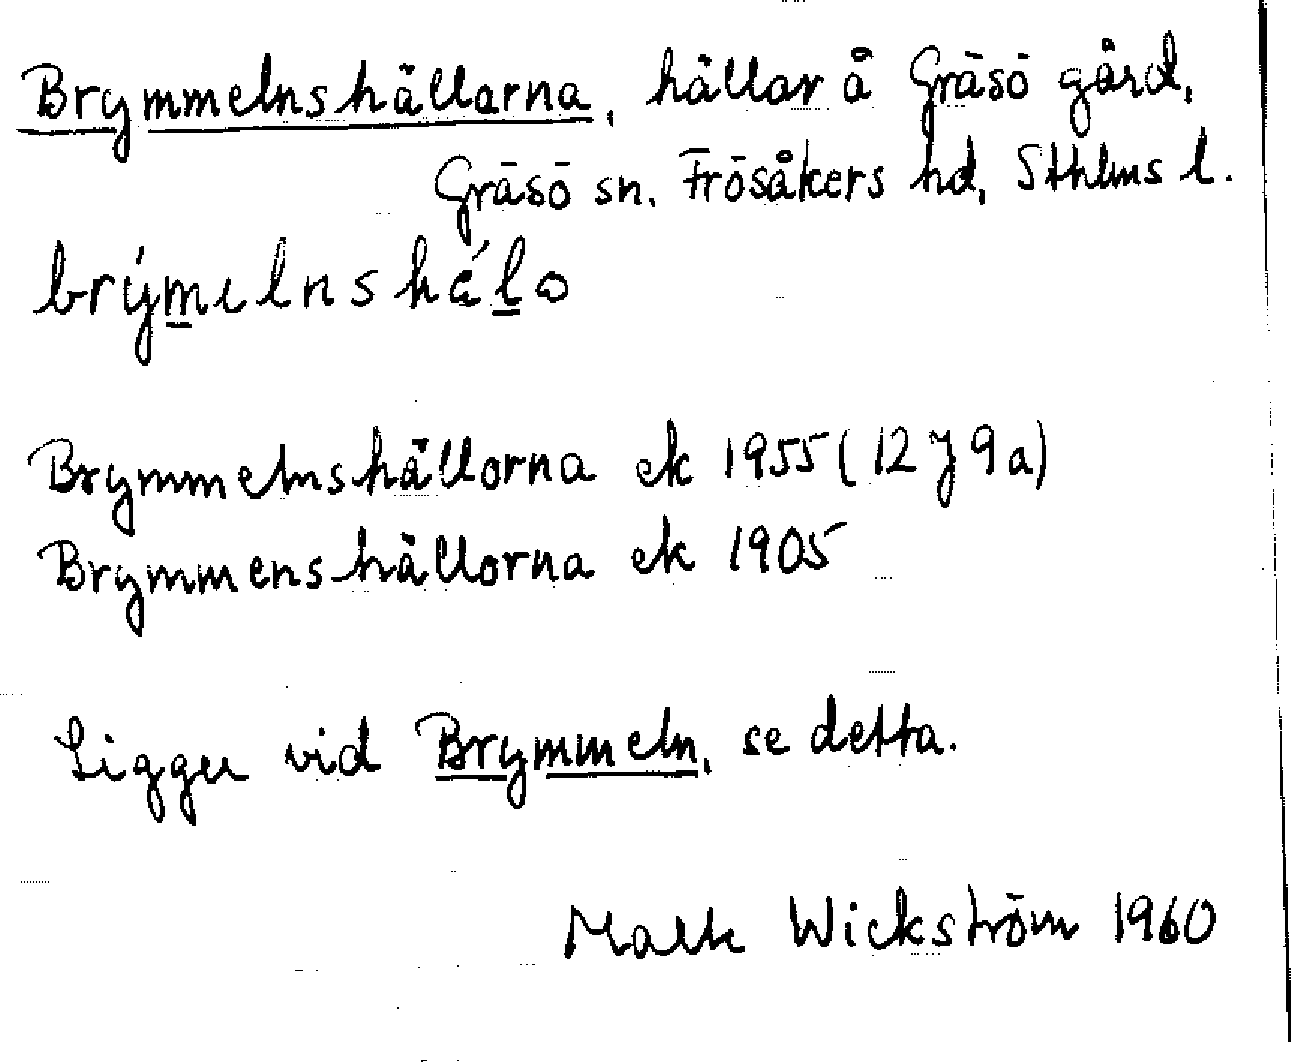 Brymmelnshällarna, hällar å Gräsö gård,
Gräsö sn. Frösåkers hd, Sthlms l.
brýmelnshálo
Brymmelnshällorna ek 1955 (12 J 9 a)
Brymmenshällorna ek 1905
Ligger vid Brymmeln, se detta.
Wickström 1960